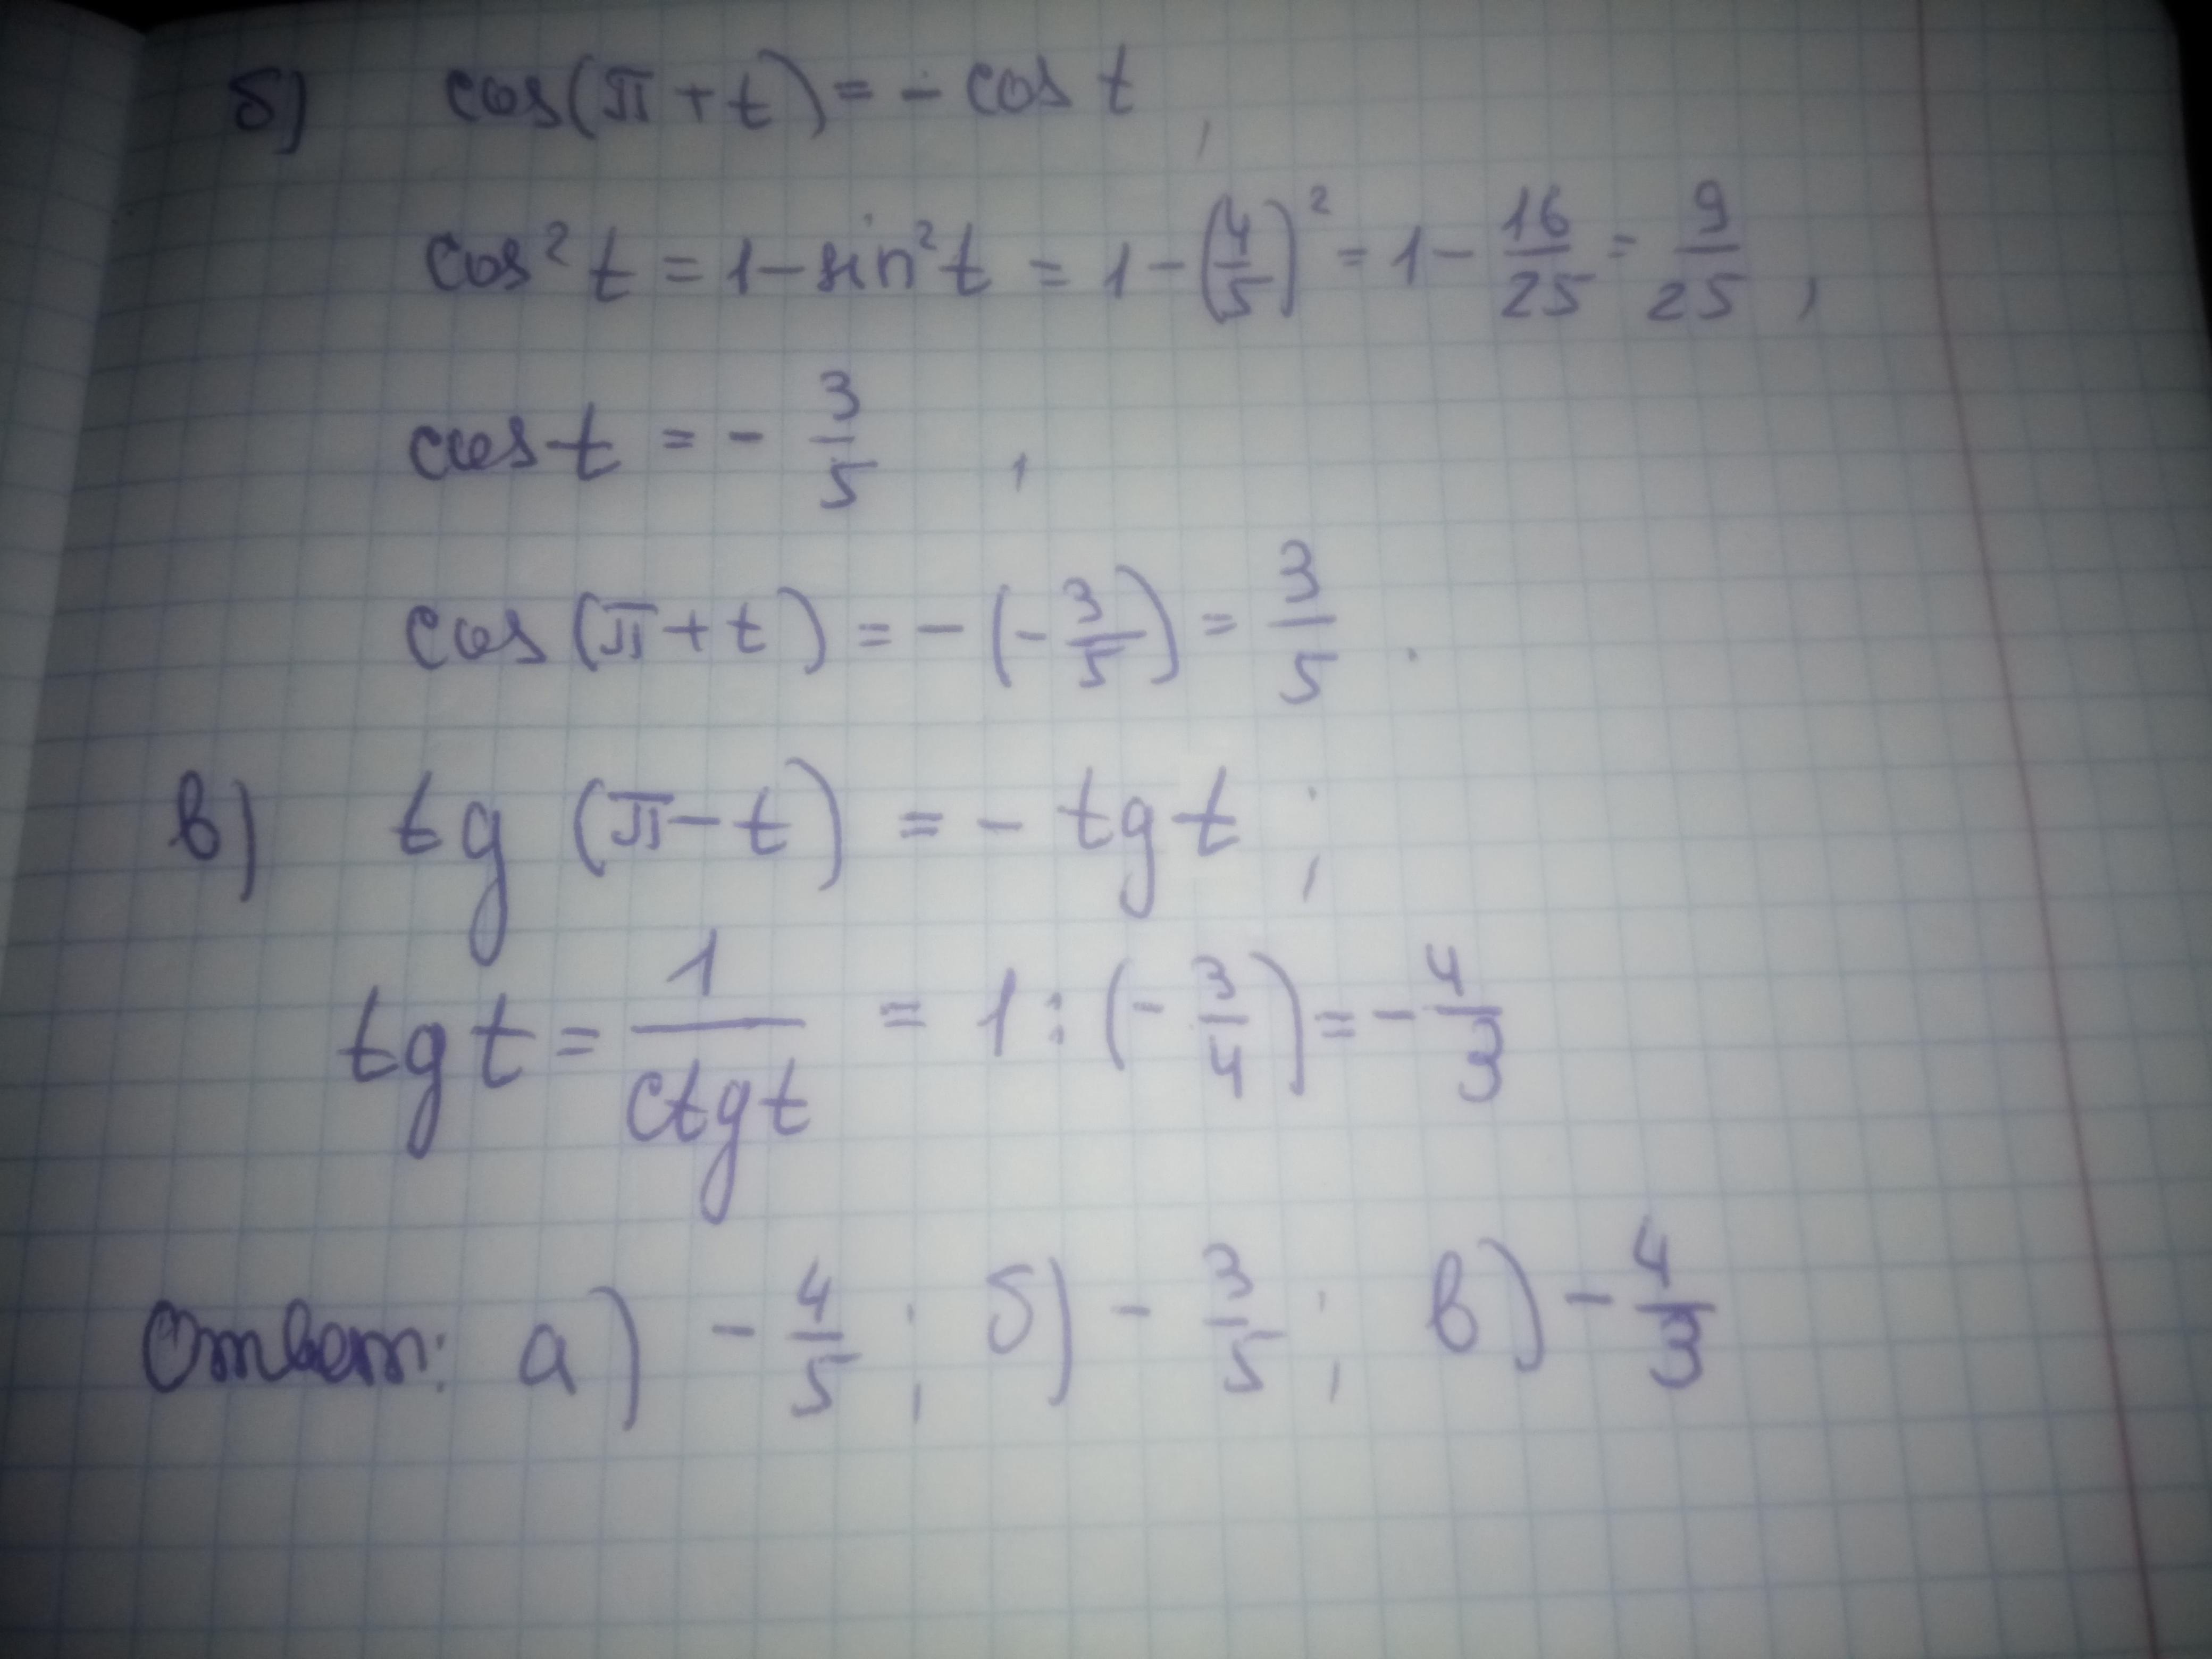 б) cos(π+t) = - cos t,
cos² t = 1 - sin² t = 1 - (4/5)² = 1 - 16/25 = 9/25,
cos t = - 3/5,
cos (π+t) = - (- 3/5) = 3/5.
в) tg (π-t) = - tg t;
tg t = 1/ctg t = 1 : (- 3/4) = - 4/3
Ответ: а) - 4/5; б) - 3/5; в) - 4/3